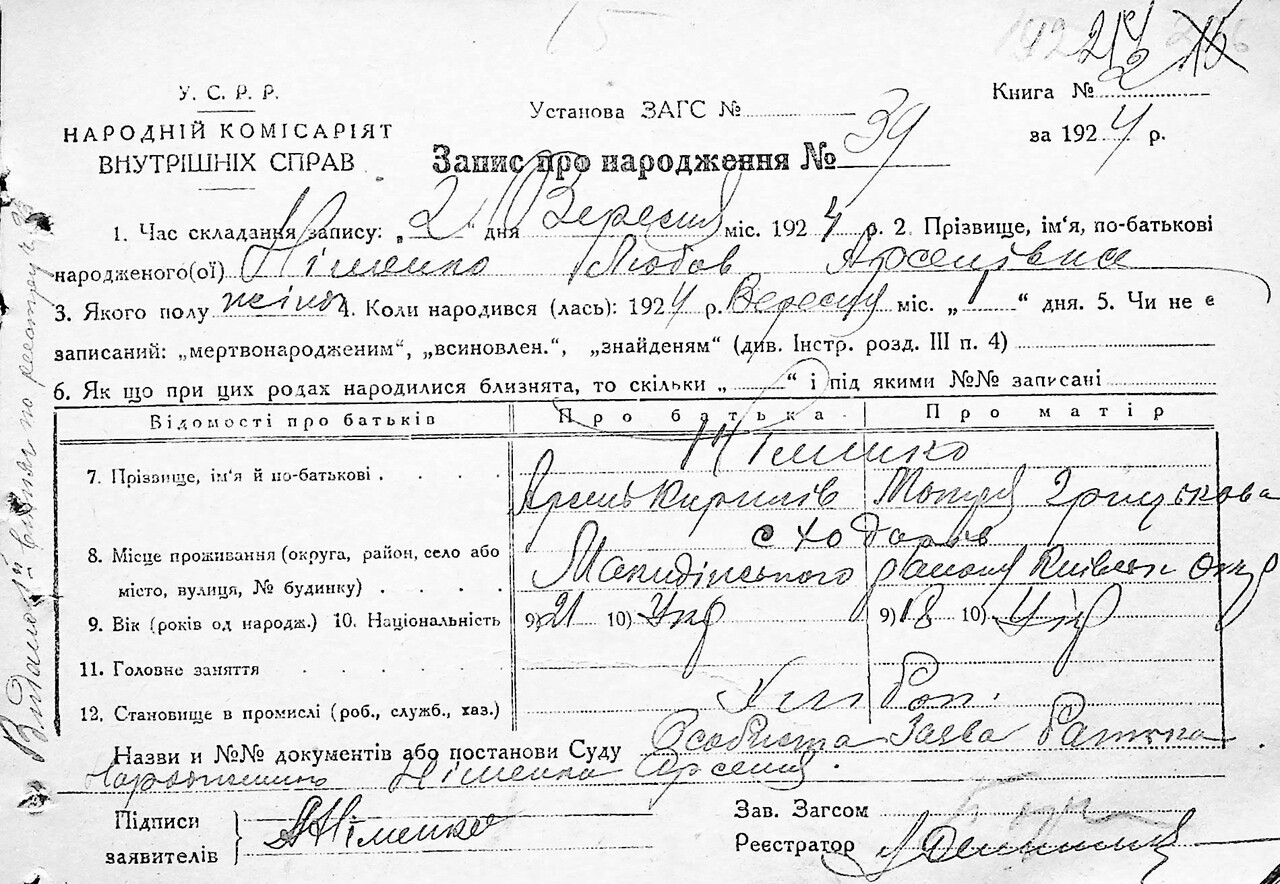 15
У. С. Р. Р.
НАРОДНІЙ КОМІСАРІЯТ
ВНУТРІШНІХ СПРАВ
Установа ЗАГС №
Книга № 2
за 1924 р.
Запис про народження № 39
1. Час складання запису: „2“ дня Вересня міс. 1924 р. 2. Прізвище, ім'я, по-батькові
народженого(ої) Німенко Любов Арсенівна
3. Якого полу жіноч 4. Коли народився (лась): 1924 р. Вересня міс. „1“ дня. 5. Чи не є
записаний: „мертвонародженим“, „всиновлен.“, „знайденям“ (див. Інстр. розд. III п. 4)
6. Як що при цих родах народилися близнята, то скільки „ “ і під якими №№ записані
Відомості про батьків Про батька Про матір
Німенко
7. Прізвище, ім'я й по-батькові Арсень Кирилів Мотря Грицькова
с Ходорів
8. Місце проживання (округа, район, село або
місто, вулиця, № будинку) району Київськ Окр
9. Вік (років од народж.) 10. Національність 9) 21 10) Укр 9) 18 10) Укр
11. Головне заняття
Хліб
12. Становище в промислі (роб., служб., хаз.)
Назви и №№ документів або постанови Суду Особиста Заява Батька
Німенка Арсения.
Підписи
заявителів
АНіменко
Зав. Загсом
Реєстратор